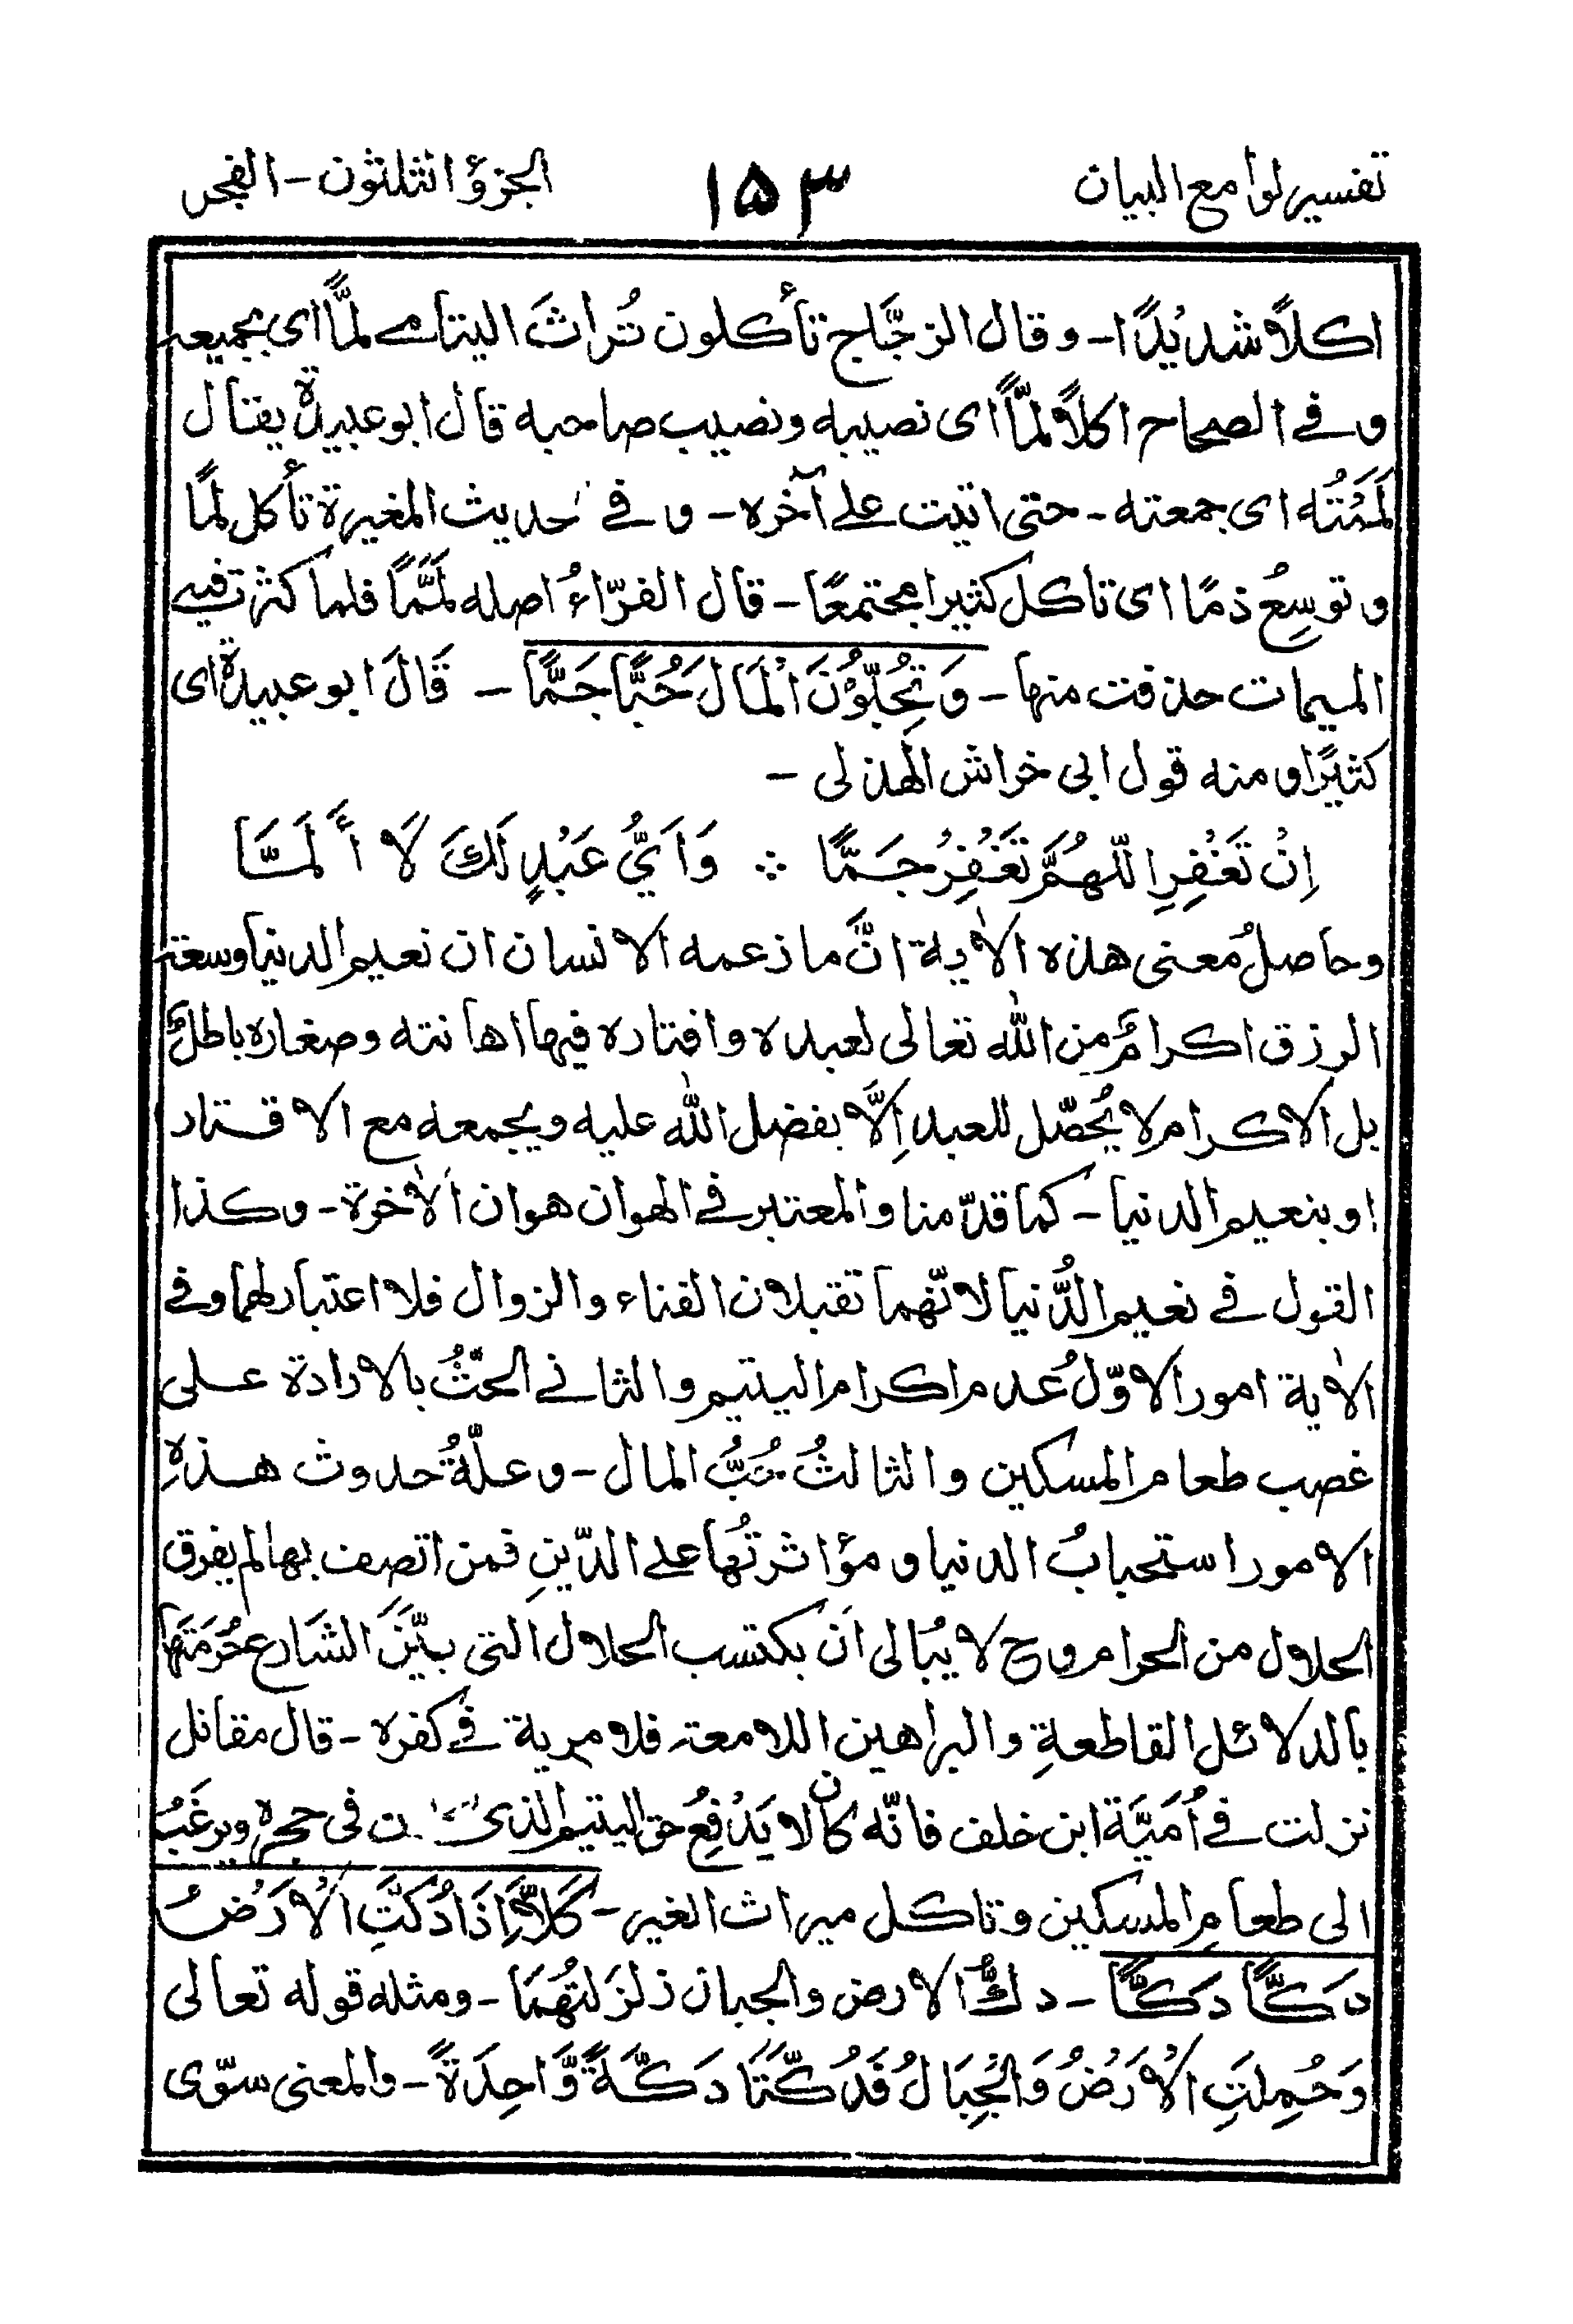 تفسير لوامع البيان ١٥٣ الجزؤ الثلثون - الفجر
اكلاً شديدًا - وقال الزجّاج تأكلون تُراثَ اليتامے لمًّا اى بجميعه
وفے الصحاح اكلاً لمًّا اى نصيبه ونصيب صاحبه قال ابو عبيدة يقال
لَمَمْتُه اى جمعته - حتى اتيت علے آخره - وفے حديث المغيرة تأكل لمًّا
وتوسِعُ ذمًا اى تاكل كثيرا مجتمعًا - قال الفرّاءُ اصله لَمَّمًا فلما كثرت فيه
الميمات حذفت منها - وَتُحِبُّوْنَ الْمَالَ حُبًّا جَمًّا - قَالَ ابو عبيدة اى
كثيرًا ومنه قول ابى خراش الهذلى -
اِنْ تَغْفِرِ اللّهُمَّ تَغْفِرْ جَمًّا ∴ وَاَيُّ عَبْدٍ لَكَ لَا أَلَمَّا
وحاصلُ معنى هذه الاٰية انَّ ما زعمه الانسان ان نعيم الدنيا وسعة
الرزق اكرامٌ من الله تعالى لعبده وافتاره فيها اهانته وصغاره باطلٌ
بل الاكرام لا يُحصّل للعبد اِلَّا بفضل الله عليه ويجمعه مع الاقتار
او بنعيم الدنيا - كما قدّمنا والمعتبر فے الهوان هوان الاٰخرة - وكذا
القول فے نعيم الدُّنيا لانّهما تقبلان الفناء والزوال فلا اعتبار لهما وفے
الاٰية امور الاوّلُ عدم اكرام اليتيم والثانے الحثُّ بالارادة على
غصب طعام المسكين والثالثُ حُبُّ المال - وعلّةُ حدوث هذهِ
الامور استحبابُ الدنيا ومؤاثرتُها علے الدّينِ فمن اتصف بها لم يفرق
الحلال من الحرام وح لا يبالى ان يكتسب الحلال التى بيّنَ الشارع حُرمَتَها
بالدلائل القاطعةِ والبراهين اللامعة فلا مرية فے كفره - قال مقاتل
نزلت فے اُمَيَّة ابن خلف فانّه كان لا يَدْفِعُ حق اليتيم الذى فى حجره ويرغَبُ
الى طعامِ المسكين وتاكل ميراث الغير - كَلَّآ اِذَا دُكَّتِ الْاَرْضُ
دَكًّا دَكًّا - دكُّ الارض والجبان زلزلتُهُمَا - ومثله قوله تعالى
وَحُمِلَتِ الْاَرْضُ وَالْجِبَالُ فَدُكَّتَا دَكَّةً وَّاحِدَةً - والمعنى سوّى